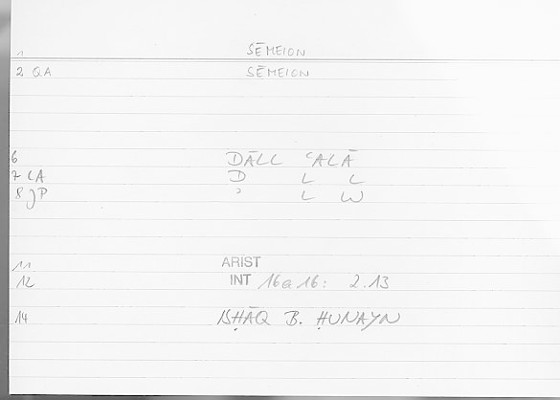 1 SĒMEION
2 QA SĒMEION
6 DĀLL ʿALĀ
7 LA D L L
8 JP ʾ L W
11 ARIST
12 INT 16a16: 2.13
14 ISḤĀQ B. ḤUNAYN